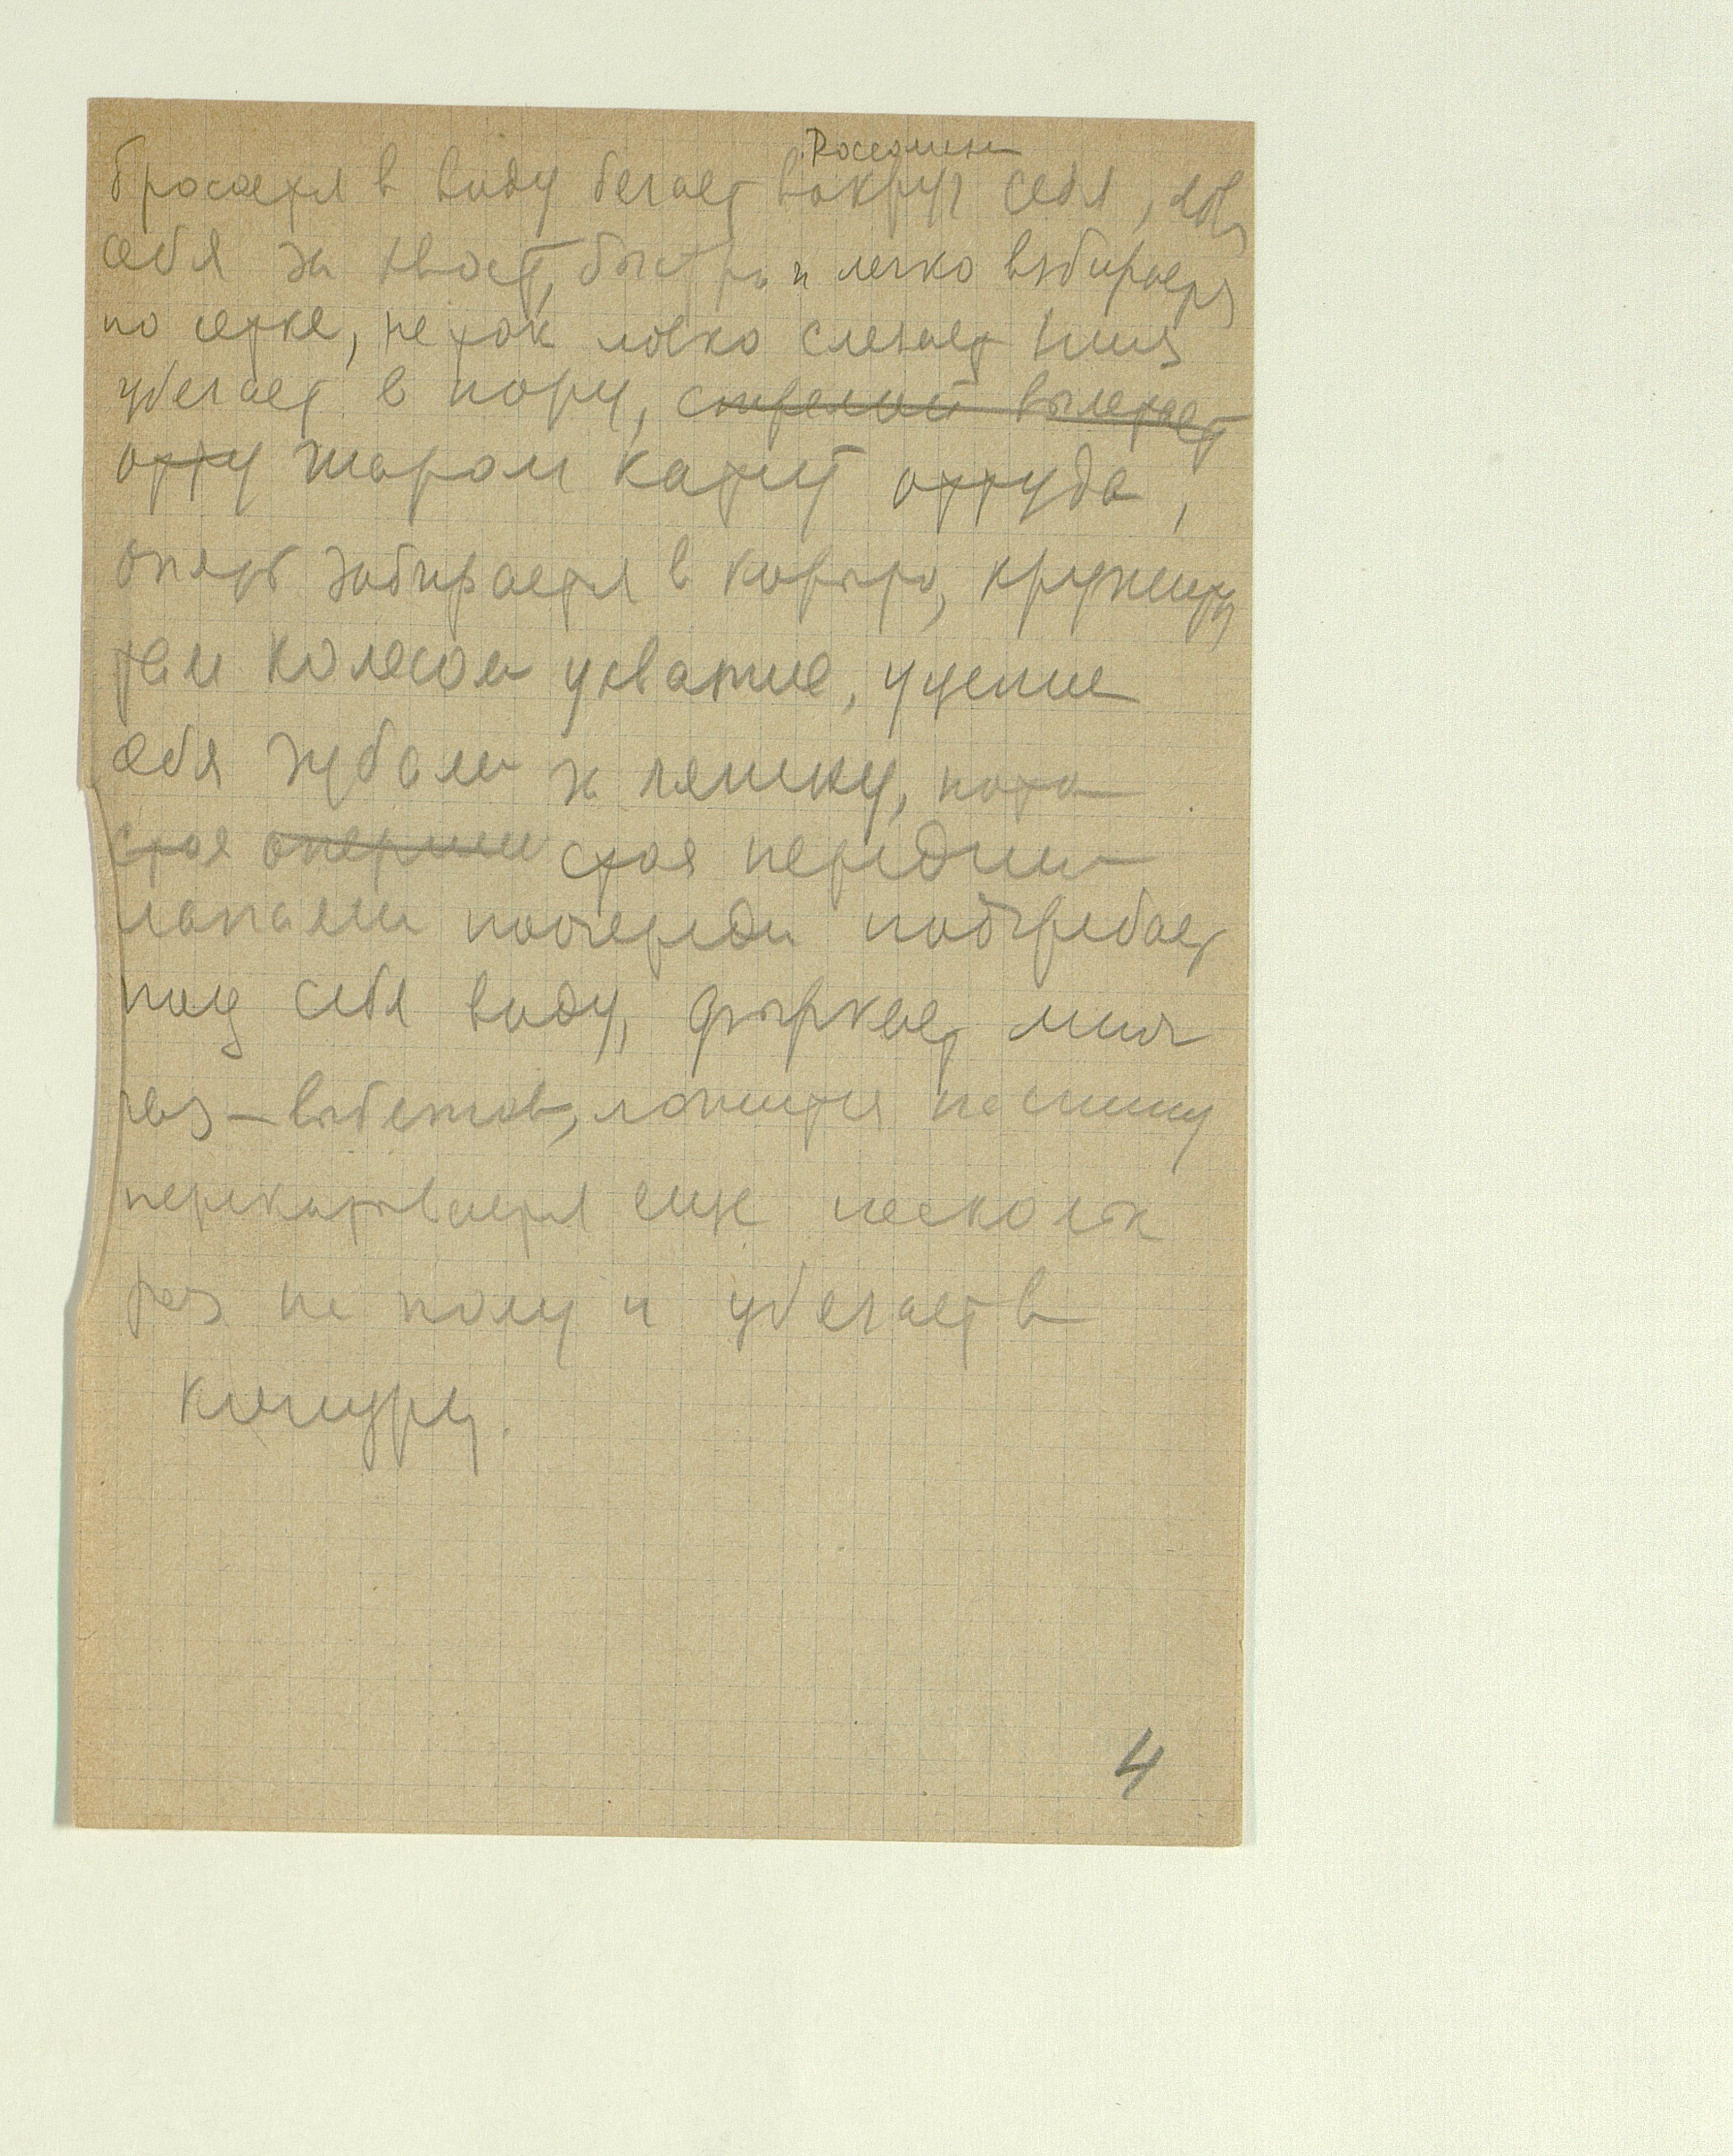 бросается в воду бегает вокруг себя, ловя
себя за хвост, быстро и легко взбирается
по сетке, не так ловко слезает вниз
убегает в нору, стрелой вылетает
отту шаром катит оттуда,
опять забирается в корыто, кружится
там колесом ухватив, уцепив
себя зубами за ляжку, пото
стоя стоя передними
лапами поочереди подгребает
под себя воду, фыркает миг
раз – выбежав, ложится на спину
перекатывается еще несколько
раз на полу и убегает в
конуру.
4